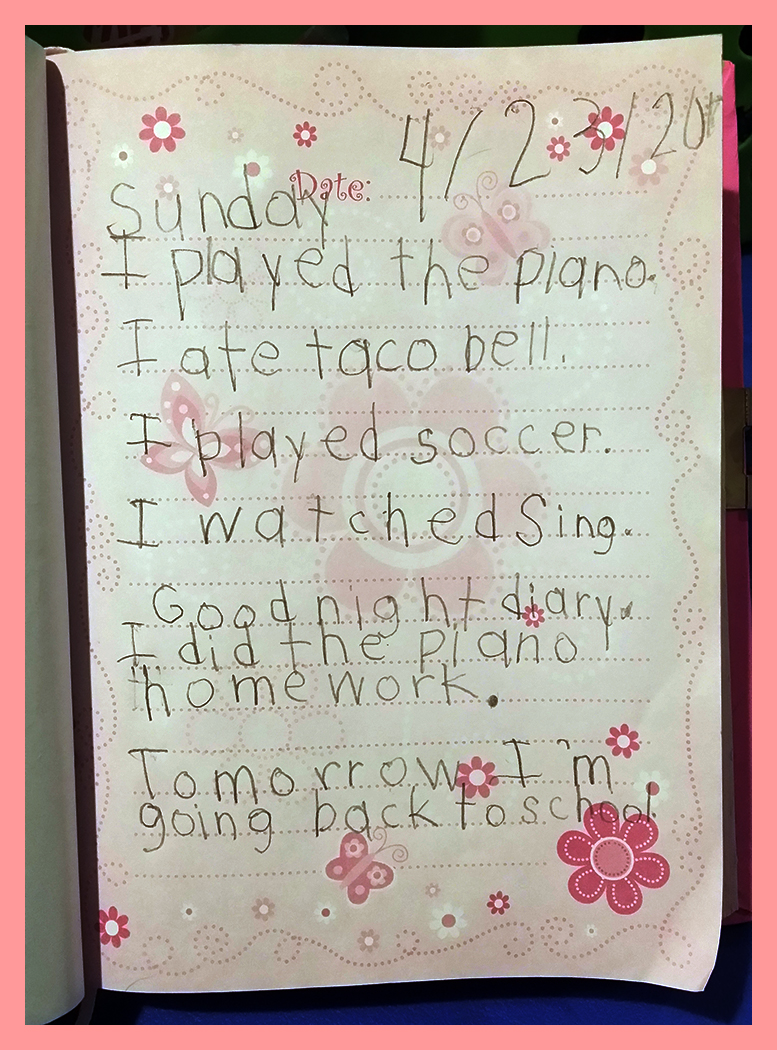 4/23/201
Date:
Sunday
I played the piano.
I ate taco bell.
I played soccer.
I watched Sing.
Good night diary.
I did the piano
homework.
Tomorrow I'm
going back to school.